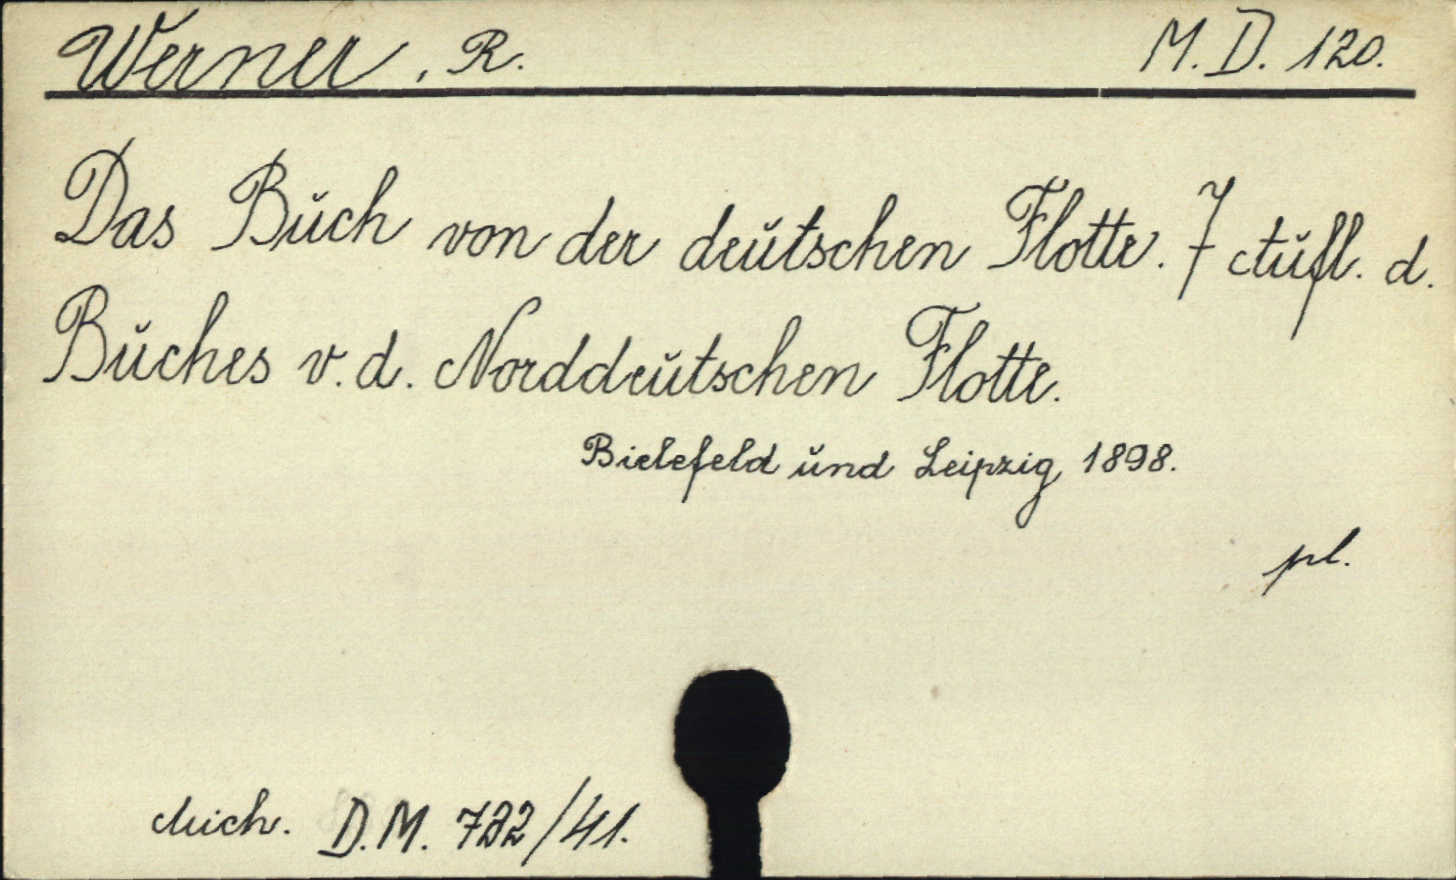 Werner, R. M. D. 120.
Das Buch von der deutschen Flotte. 7 Aufl. d.
Buches v. d. Norddeutschen Flotte.
Bielefeld und Leipzig 1898.
pl.
D. M. 732/41.